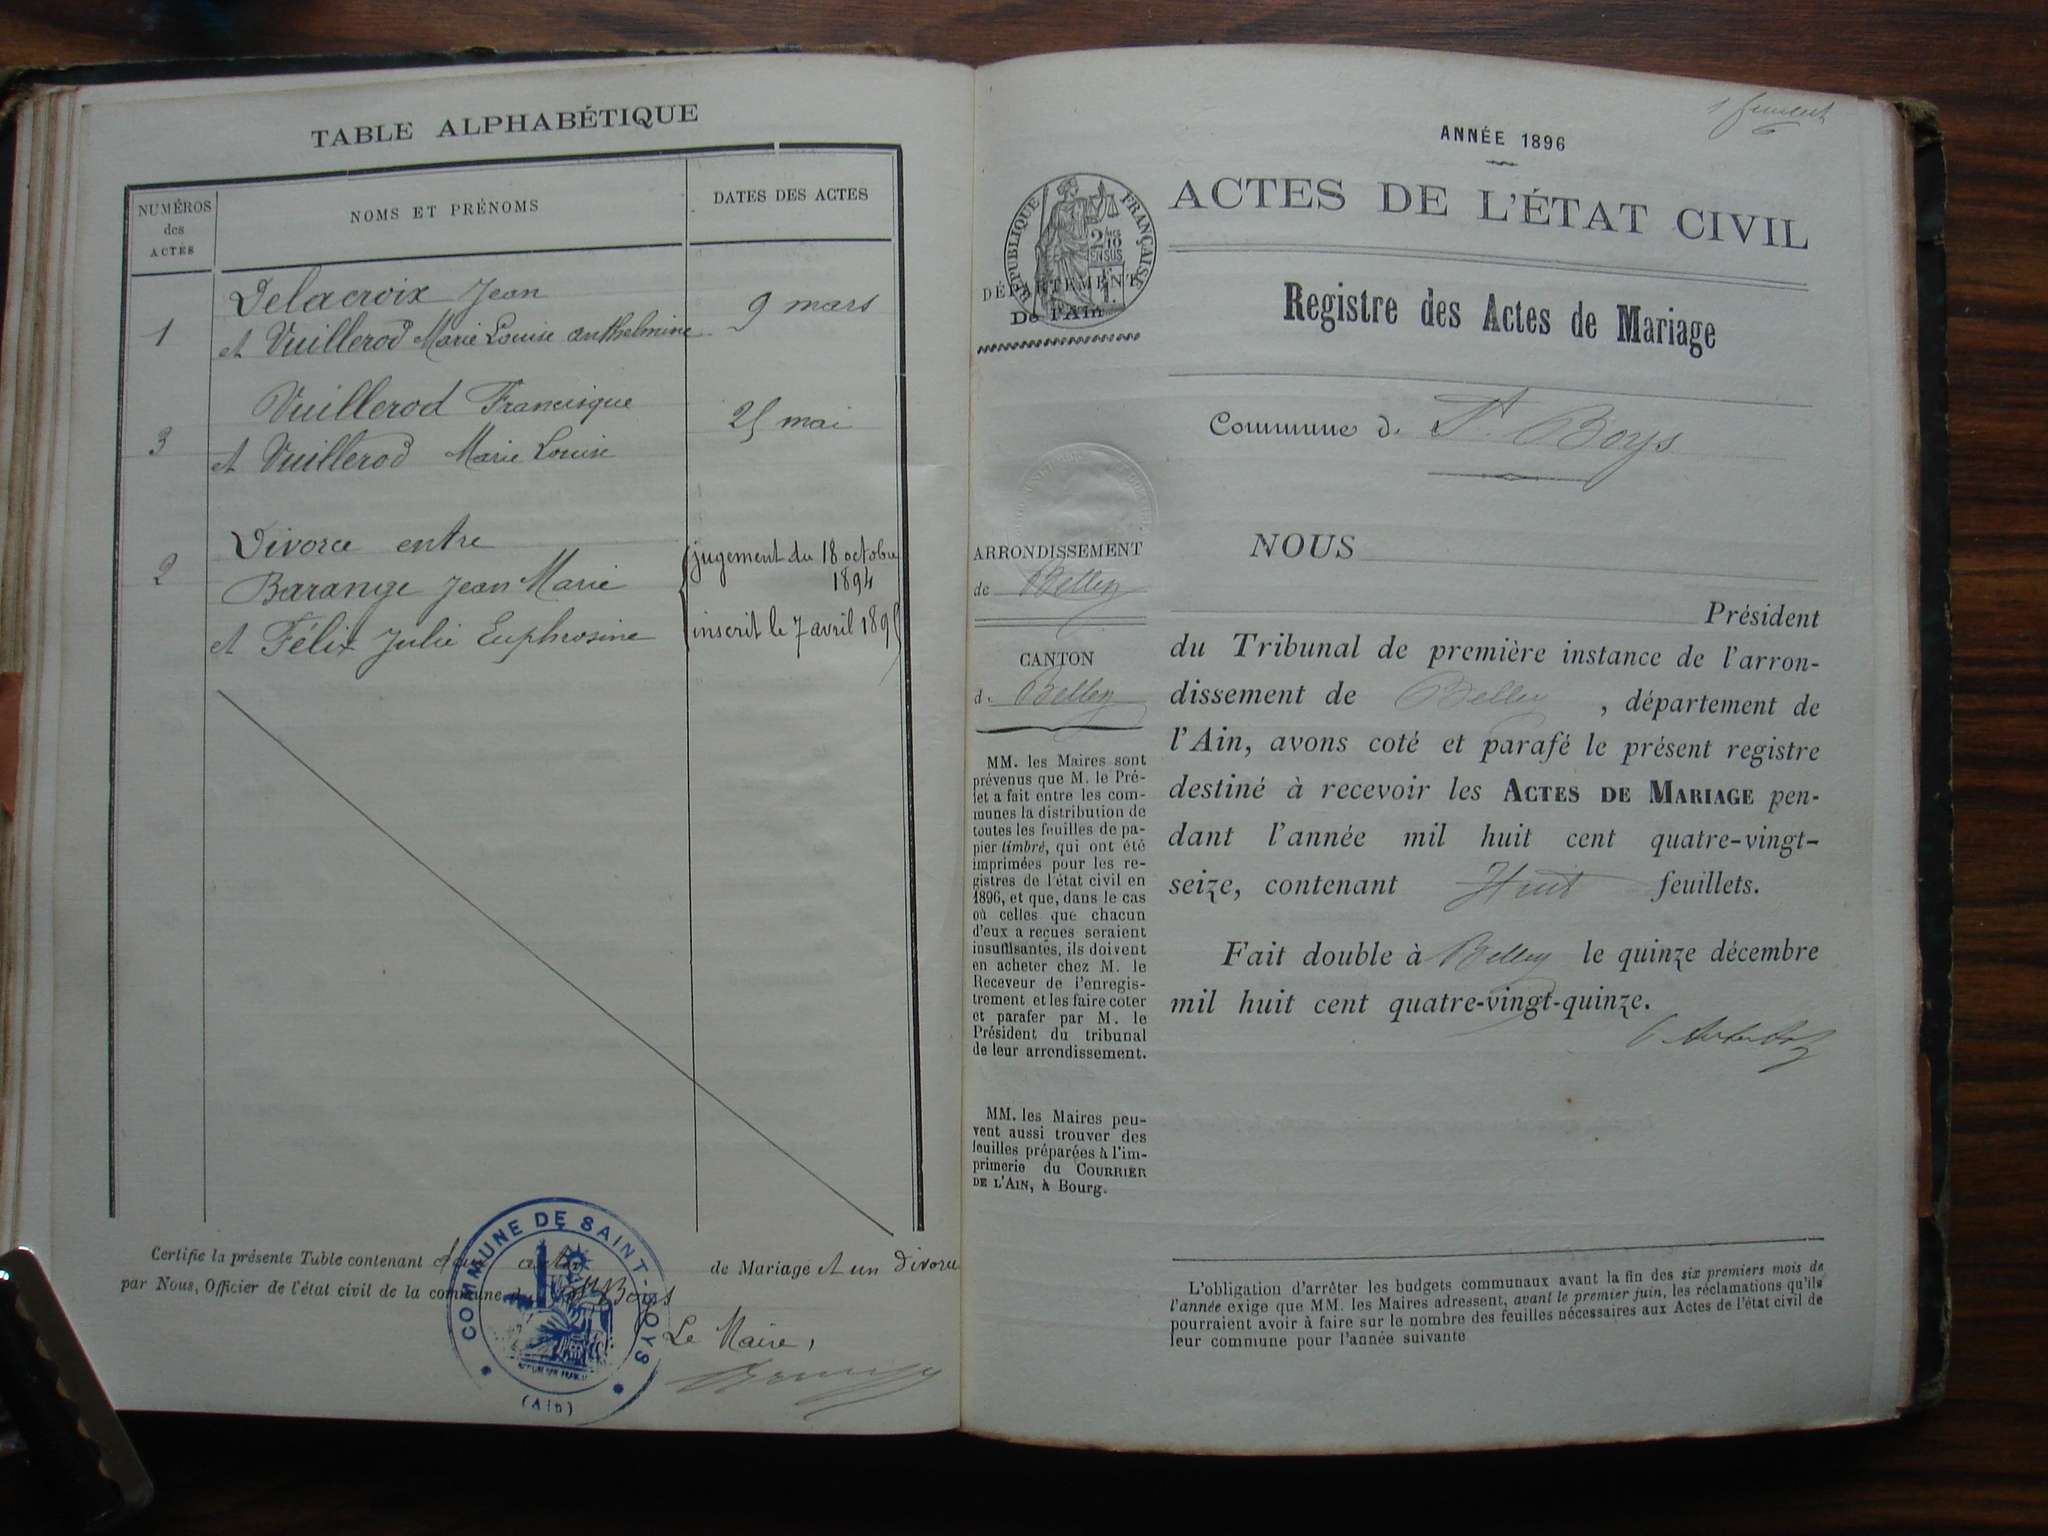 TABLE ALPHABÉTIQUE
NUMÉROS
des
ACTES
NOMS ET PRÉNOMS
DATES DES ACTES
1
Delacroix Jean
et Vuillerod Marie Louise Anthelmine
9 mars
3
Vuillerod Francisque
et Vuillerod Marie Louise
25 mai
2
Divorce entre
Barange Jean Marie
et Félix Julie Euphrosine
jugement du 18 octobre
1894
inscrit le 7 avril 1895
Certifie la présente Table contenant de Mariage et un divorce
par Nous, Officier de l'état civil de la commune de St Boys
Le Maire,
COMMUNE DE SAINT-BOYS
(Ain)
1er feuillet
ANNÉE 1896
ACTES DE L'ÉTAT CIVIL
RÉPUBLIQUE FRANÇAISE
2/10
EN SUS
DÉPARTEMENT
De l'Ain
Registre des Actes de Mariage
Commune d. St. Boys
ARRONDISSEMENT
de Belley
CANTON
d. Belley
MM. les Maires sont
prévenus que M. le Pré-
fet a fait entre les com-
munes la distribution de
toutes les feuilles de pa-
pier timbré, qui ont été
imprimées pour les re-
gistres de l'état civil en
1896, et que, dans le cas
où celles que chacun
d'eux a reçues seraient
insuffisantes, ils doivent
en acheter chez M. le
Receveur de l'enregis-
trement et les faire coter
et parafer par M. le
Président du tribunal
de leur arrondissement.
MM. les Maires peu-
vent aussi trouver des
feuilles préparées à l'im-
primerie du COURRIER
DE L'AIN, à Bourg.
NOUS
Président
du Tribunal de première instance de l'arron-
dissement de Belley, département de
l'Ain, avons coté et parafé le présent registre
destiné à recevoir les ACTES DE MARIAGE pen-
dant l'année mil huit cent quatre-vingt-
seize, contenant Huit feuillets.
Fait double à Belley le quinze décembre
mil huit cent quatre-vingt-quinze.
L'obligation d'arrêter les budgets communaux avant la fin des six premiers mois de
l'année exige que MM. les Maires adressent, avant le premier juin, les réclamations qu'ils
pourraient avoir à faire sur le nombre des feuilles nécessaires aux Actes de l'état civil de
leur commune pour l'année suivante